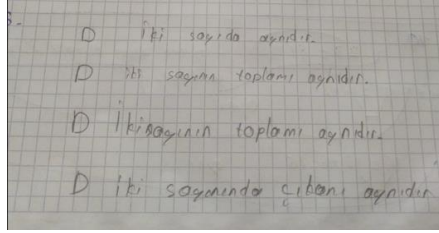 D İki sayıda aynıdır.
D iki sayının toplamı aynıdır.
D İkisayının toplamı aynıdır.
D iki sayınında çıbanı aynıdır